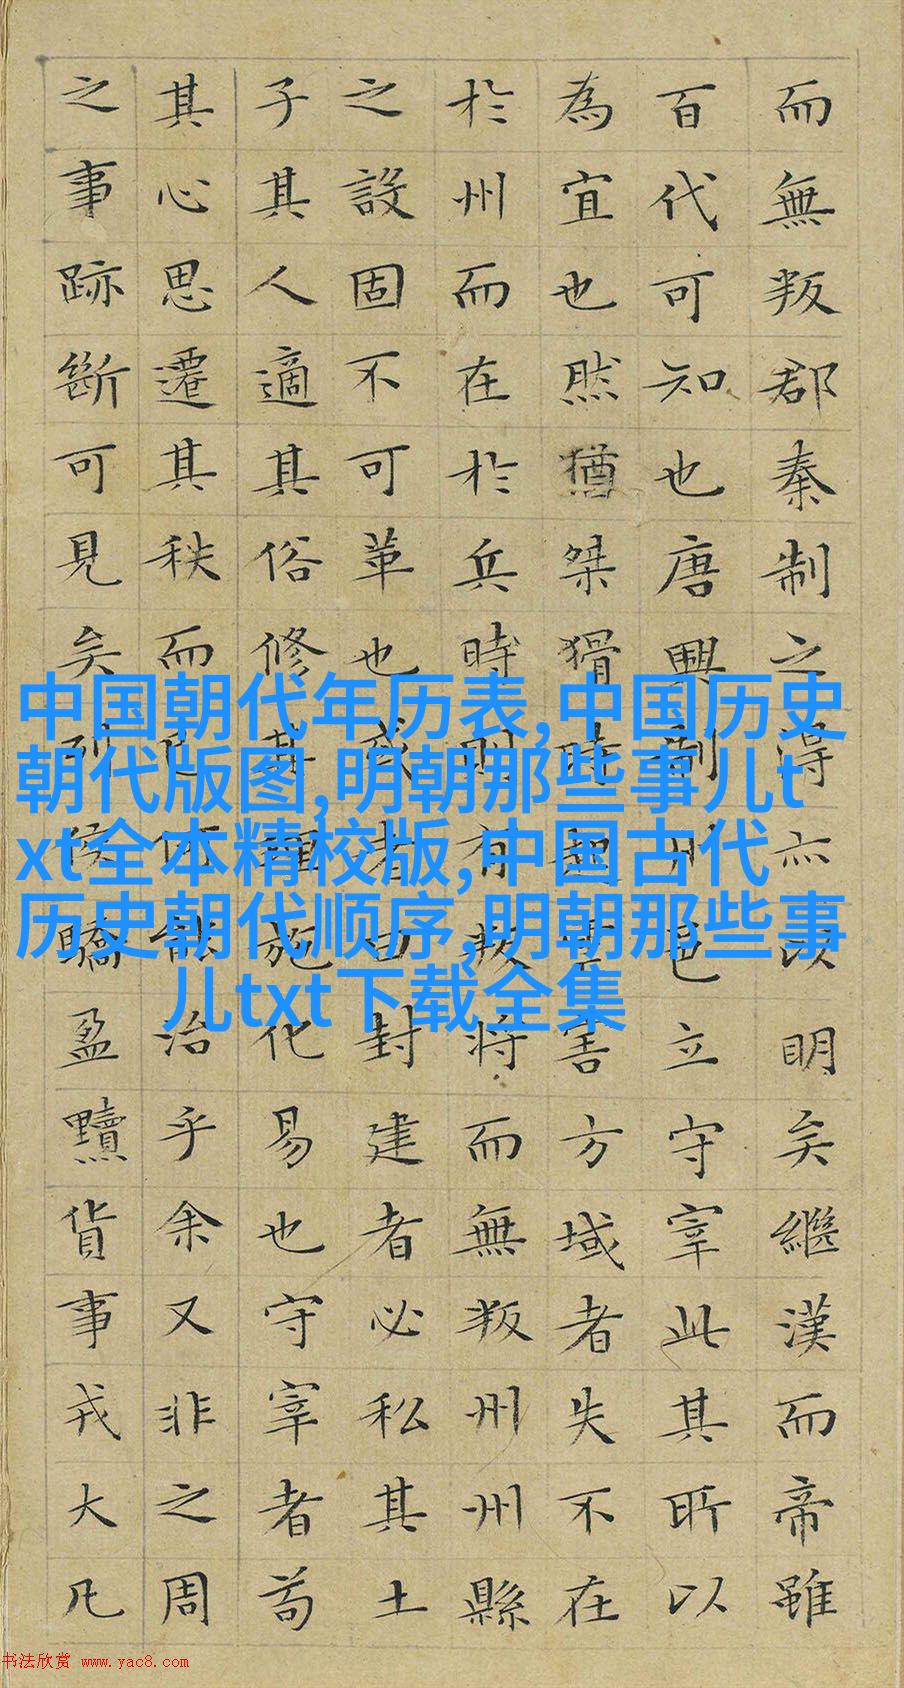 而無叛郡秦制之得亦以明矣繼漢而帝雖
百代可知也唐興制州邑立守宰此其所以
為宜也然猶桀猾時起虐害方域者失不在
於州而在於兵時則有叛將而無叛州州縣
之設固不可革也或者曰封建者必私其土
子其人適其俗修其理施化易也守宰者苟
其心思遷其秩而已何能治乎余又非之周
之事跡斷可見矣列侯驕盈黷貨事戎大凡
中国朝代年历表,中国历史
朝代版图,明朝那些事儿t
xt全本精校版,中国古代
历史朝代顺序,明朝那些事
儿txt下载全集
书法欣赏 www.yac8.com